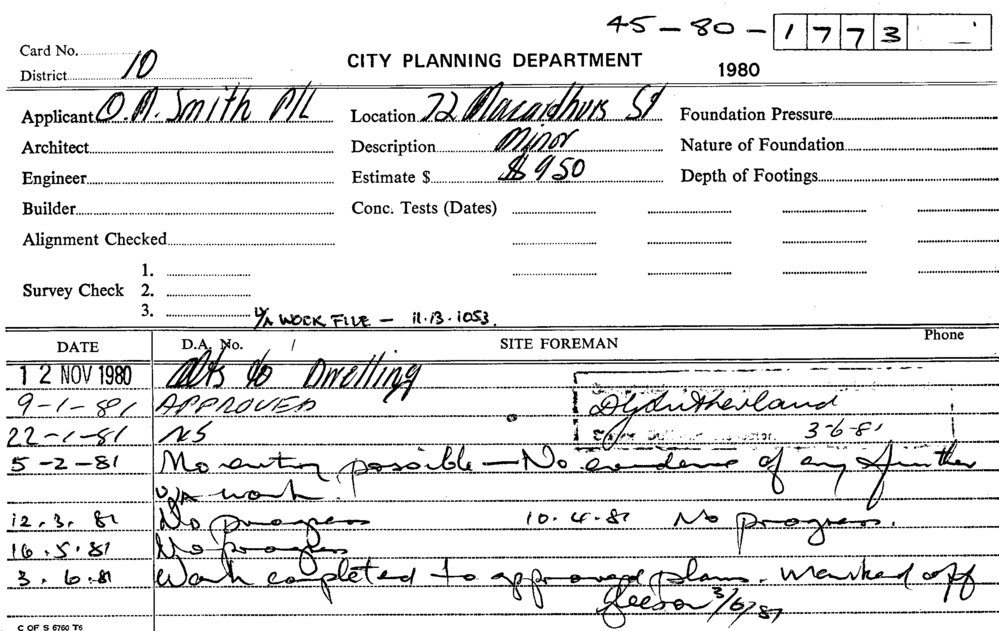 45-80-1773
Card No.
District 10
CITY PLANNING DEPARTMENT
1980
Applicant O.M. Smith P/L
Location 72 Macarthurs St
Foundation Pressure
Architect
Description Minor
Nature of Foundation
Engineer
Estimate $ $950
Depth of Footings
Builder
Conc. Tests (Dates)
Alignment Checked
Survey Check
1.
2.
3.
U/A WORK FILE - 11.13.1053.
DATE
D.A. No. /
SITE FOREMAN
Phone
12 NOV 1980 Alts to Dwelling
9-1-81 APPROVED
DG Sutherland
22-1-81 NS
3-6-81
5-2-81 No entry possible - No evidence of any further
u/a work.
12.3.81 No progress 10.4.81 No progress.
16.5.81 No progress
3.6.81 Work completed to approved plans. Marked off
Gleeson 3/6/81
C OF S 6760 T6